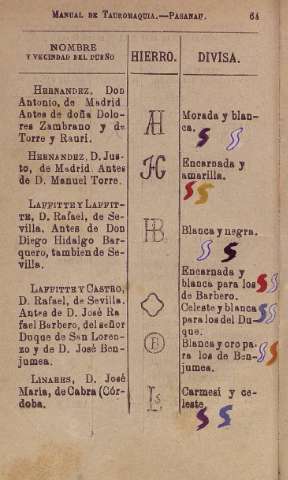 MANUAL DE TAUROMAQUIA.—PASANAU. 64
NOMBRE
Y VECINDAD DEL DUEÑO
HIERRO.
DIVISA.
HERNANDEZ, Don
Antonio, de Madrid
Antes de doña Dolo-
res Zambrano y de
Torre y Rauri.
AH
Morada y blan-
ca.
HERNANDEZ, D. Jus-
to, de Madrid. Antes
de D. Manuel Torre.
Encarnada y
amarilla.
LAFFITTE Y LAFFIT-
TE, D. Rafael, de Se-
villa. Antes de Don
Diego Hidalgo Bar-
quero, tambien de Se-
villa.
HB
Blanca y negra.
LAFFITTE Y CASTRO,
D. Rafael, de Sevilla.
Antes de D. José Ra-
fael Barbero, del señor
Duque de San Loren-
zo y de D. José Ben-
jumea.
B
Encarnada y
blanca para los
de Barbero.
Celeste y blanca
para los del Du-
que.
Blanca y oro pa-
ra los de Ben-
jumea.
LINARES, D. José
Maria, de Cabra (Cór-
doba.
Ls
Carmesí y ce-
leste.